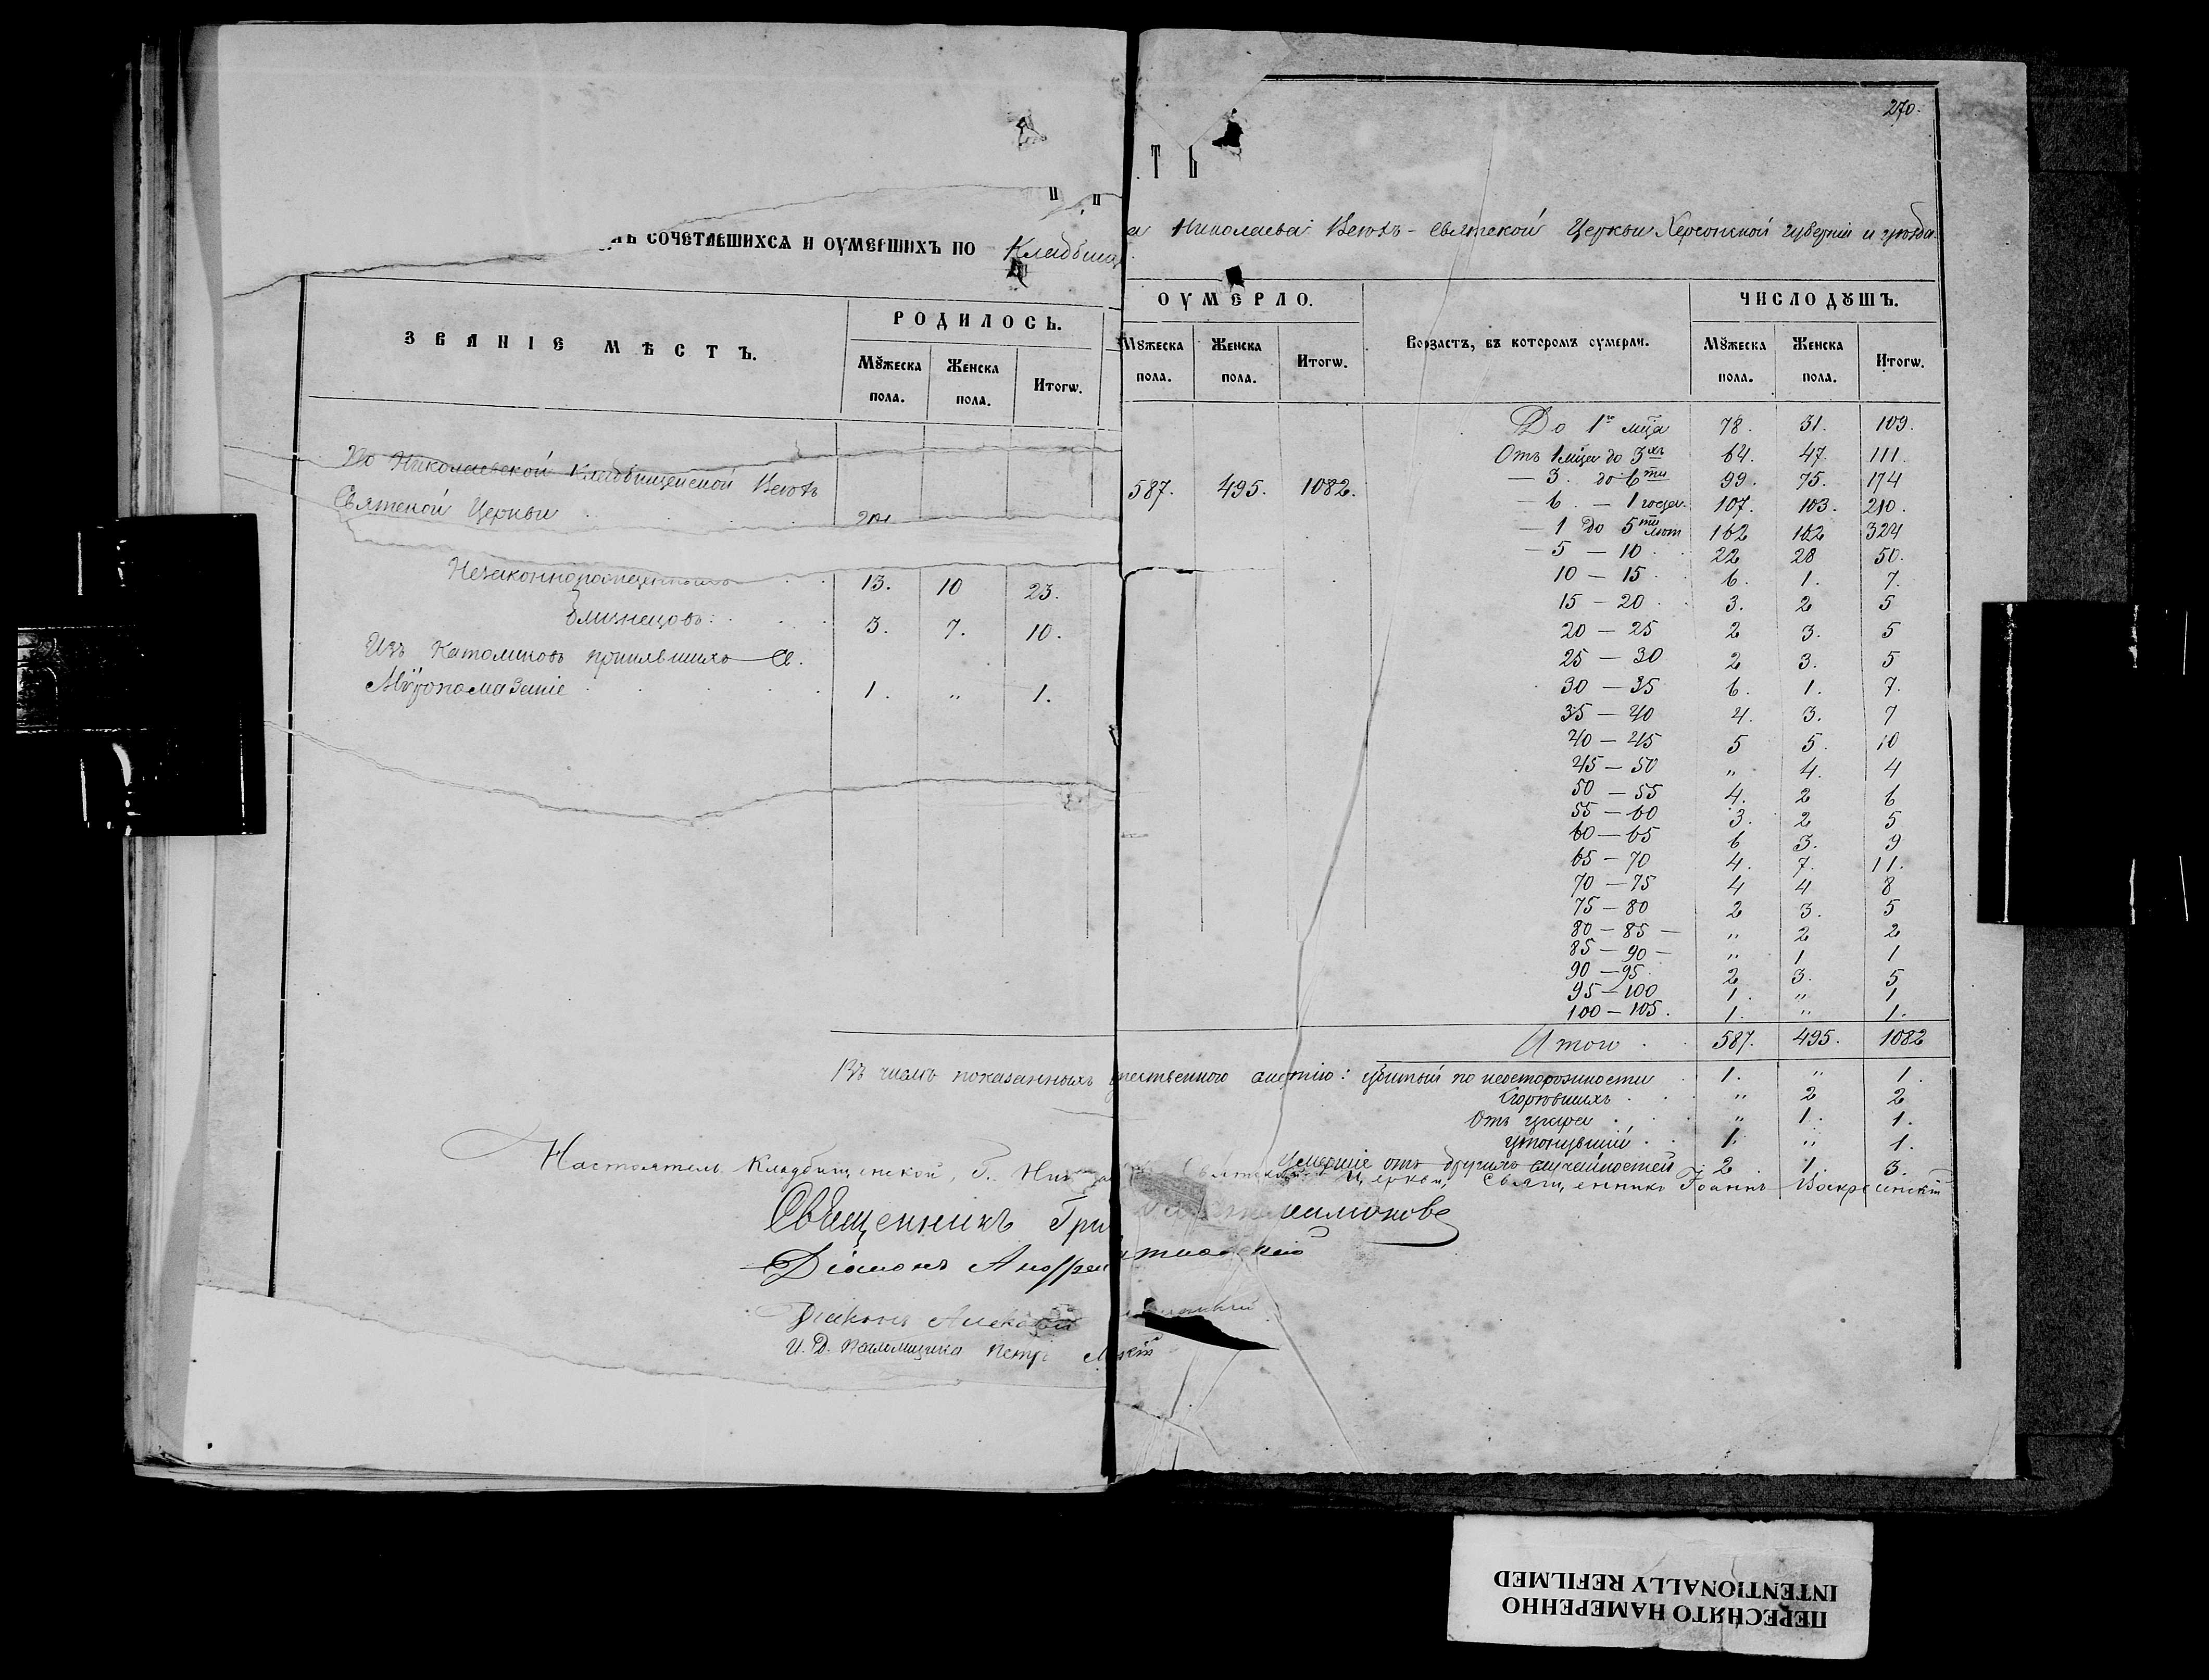 270.
ТЬ
сочетавшихся и оумершихъ по Кладбищ
а Николаева Всѣхъ-Святской Церкви Херсонской губерніи и уѣзда.
ЗВАНІЕ МѢСТЪ.
РОДИЛОСЬ.
Мꙋжеска пола.
Женска пола.
Итогѡ.
ОУМЕРЛО.
Мꙋжеска пола.
Женска пола.
Итогѡ.
Возрастъ, въ которомъ оумерли.
ЧИСЛО ДꙊШЪ.
Мꙋжеска пола.
Женска пола.
Итогѡ.
По Николаевской Кладбищенской Всѣхъ
Святской Церкви
587. 495. 1082.
Незаконнорожденныхъ 13. 10 23.
Близнецовъ: 3. 7. 10.
Изъ Католиковъ принявшихъ Св.
Мѵропомазаніе 1. „ 1.
До 1го мца 78. 31. 109.
Отъ 1 мца до 3хъ 64. 47. 111.
— 3. до 6ти 99. 75. 174
— 6. — 1 года. 107. 103. 210.
— 1 до 5ти лѣт 162 162 324
— 5 — 10 22 28 50.
10 — 15 6. 1. 7.
15 — 20 3. 2 5
20 — 25 2 3. 5
25 — 30 2 3. 5
30 — 35 6. 1. 7.
35 — 40 4. 3. 7
40 — 45 5 5. 10
45 — 50 „ 4. 4
50 — 55 4. 2 6
55 — 60 3. 2 5
60 — 65 6 3. 9
65 — 70 4. 7. 11.
70 — 75 4 4 8
75 — 80 2 3. 5
80 — 85 — „ 2 2
85 — 90 — „ 1 1
90 — 95 2 3. 5
95 — 100 1. „ 1
100 — 105. 1. „ 1.
Итого 587. 495. 1082
Въ числѣ показанныхъ
: убитый по неосторожности 1. „ 1.
Сгорѣвшихъ „ 2 2
Отъ угара „ 1. 1.
утонувшій 1. „ 1.
Умершіе отъ другихъ случайностей 2 1. 3.
Настоятель Кладбищенской, Г. Ник Церкви, Священникъ Іоаннъ Воскресенскій
Священникъ Гри
Діаконъ Андрей
Діаконъ Алекс
И. Д. Псаломщика Петръ
ПЕРЕСНЯТО НАМЕРЕННО
INTENTIONALLY REFILMED